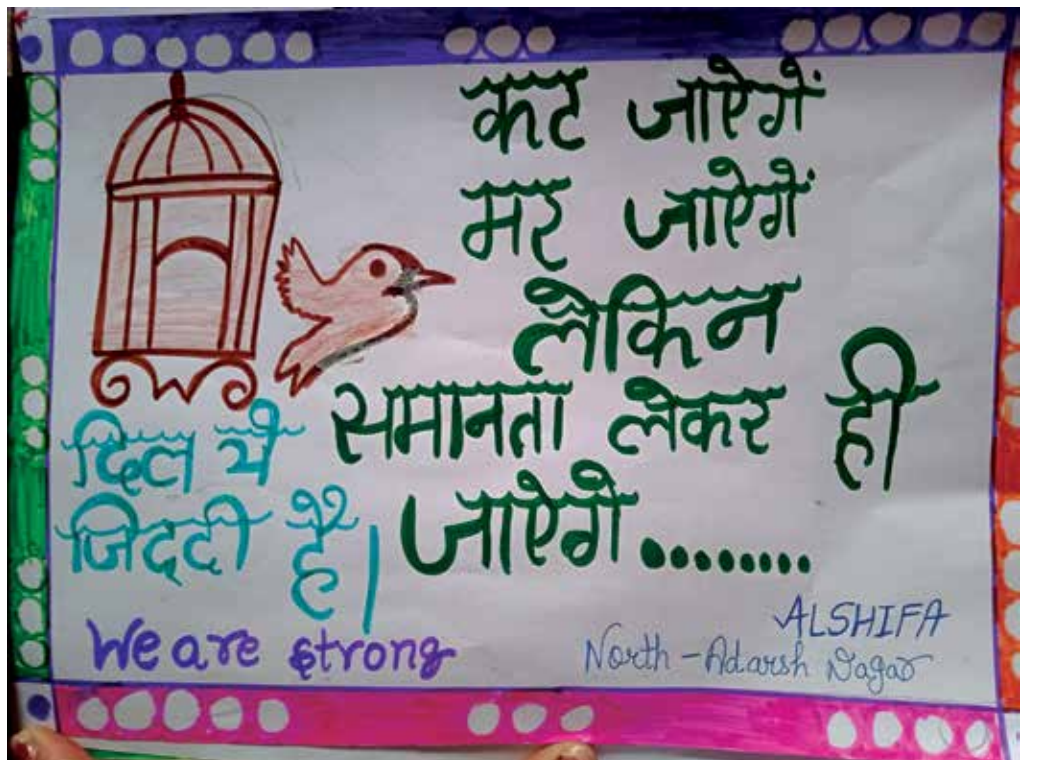 कट जाऐगें
मर जाऐगें
लेकिन
समानता लेकर ही
जाऐगे........
दिल ये
जिद्दी है।
We are strong
ALSHIFA
North - Adarsh Nagar